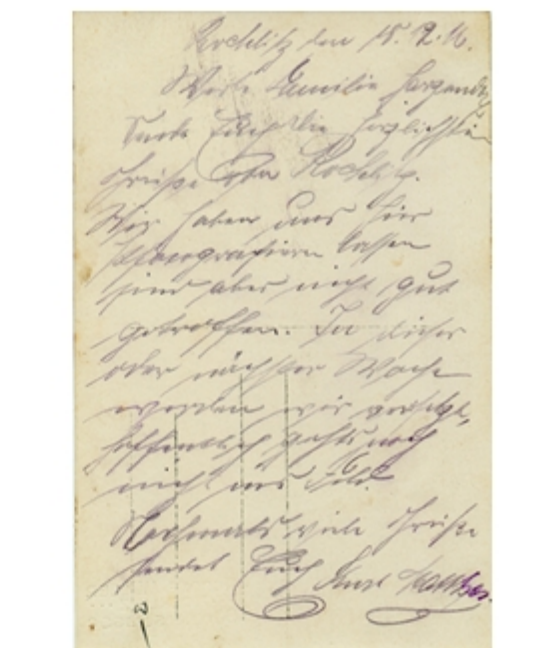 Rochlitz den 15. 2. 16.
Werte Familie
Sende Euch die herzlichsten
Grüße von Rochlitz.
Wir haben uns hier
photografieren lassen
sind aber nicht gut
getroffen. In dieser
oder nächster Woche
werden wir versetzt,
hoffentlich gehts noch
nicht ins Feld.
Nochmals viele Grüße
sendet Euch